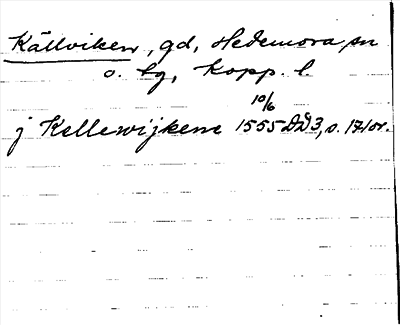 Källviken, gd, Hedemora sn
o. tg, Kopp. l.
10/6
j Kellewijkenn 1555 DD3, s. 171 or.